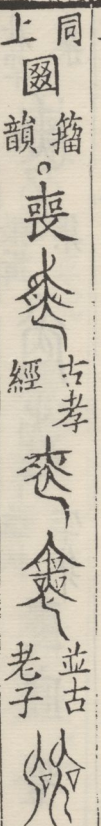 同上籀韻。喪古孝經並古老子